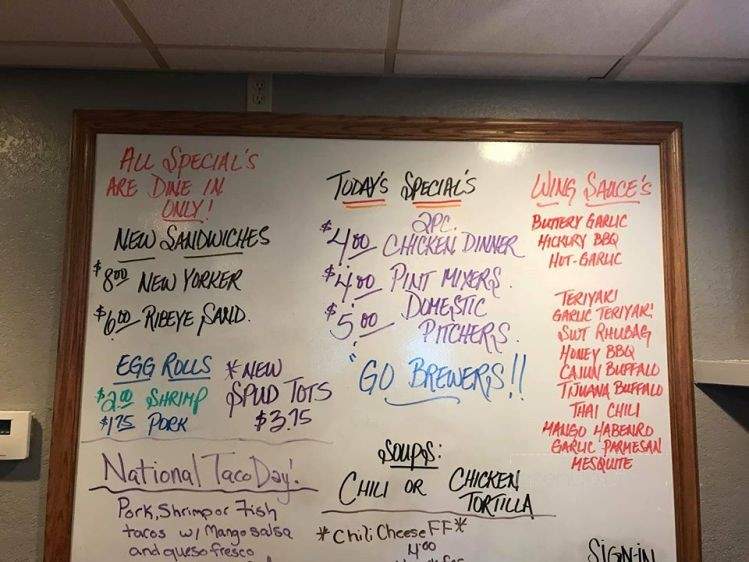 ALL SPECIAL'S
ARE DINE IN
ONLY!
NEW SANDWICHES
$8.00 NEW YORKER
$6.00 RIBEYE SAND.
EGG ROLLS
$2.00 SHRIMP
$1.75 PORK
*NEW
SPUD TOTS
$3.75
National Taco Day!
Pork, Shrimp or Fish
tacos w/ Mango salsa
and queso fresco
TODAY'S SPECIAL'S
2PC.
$4.00 CHICKEN DINNER
$4.00 PINT MIXERS.
$5.00 DOMESTIC
PITCHERS.
"GO BREWERS!!
SOUPS:
CHILI OR CHICKEN
TORTILLA
*Chili Cheese FF*
4.00
WING SAUCE'S
BUTTERY GARLIC
HICKORY BBQ
HOT-GARLIC
TERIYAKI
GARLIC TERIYAKI
SWT RHUBAG
HONEY BBQ
CAJUN BUFFALO
TIJUANA BUFFALO
THAI CHILI
MANGO HABENRO
GARLIC PARMESAN
MESQUITE
SIGN-IN